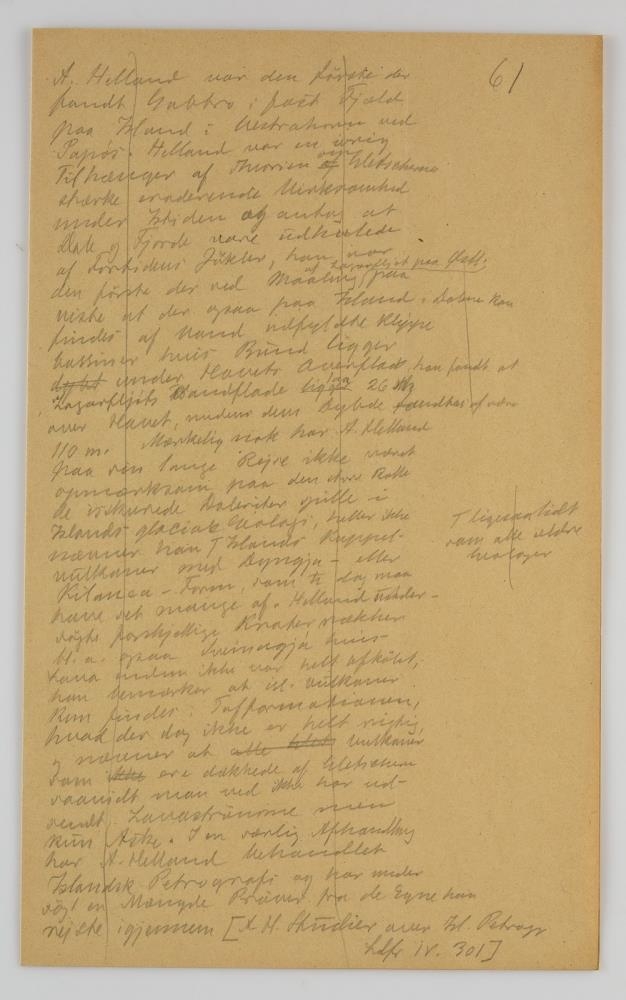 61
A. Helland var den første der
fandt Gabbro i fast Fjeld
paa Island i Vestrahorn ved
Papós. Helland var en ivrig
Tilhænger af Theorien om Gletschernes
stærke eroderende Virksomhed
under Istiden og antog at
Dale og Fjorde vare udhulede
af Fortidens Jökler, han var
den første der ved Maaling af Lagarfljót paa
viste at der ogsaa paa Island i Dalene kan
findes af Vand udfyldte Klippe
bassiner hvis Bund ligger
dybt under Havets Overflade, han fandt at
Lagarfljóts Vandflade ligger 26 m
over Havet, medens dens Dybde fandtes at være
110 m. Mærkelig nok har A. Helland
paa sin lange Rejse ikke været
opmærksom paa den store Rolle
de isskurede Doleriter spille i
Islands glaciale Geologi, heller ikke
nævner han Γ Islands Kuppel-
vulkaner med Dyngja- eller
Kilauea-Form, som han dog maa
have set mange af. Helland under-
søgte forskjellige Kraterrækker
bl. a. ogsaa Sveinagjá hvis
Lava endnu ikke var helt afkölet,
han bemærker at isl. Vulkaner
kun findes i Tufformationen,
hvad der dog ikke er helt rigtig,
og nævner at alle Vulkaner
som ikke ere dækkede af Gletschere
saavidt man ved ikke har ud-
sendt Lavaströmme men
kun Aske. I en særlig Afhandling
har A. Helland behandlet
Islandsk Petrografi og har under
søgt en Mængde Prøver fra de Egne han
rejste igjennem [A. H. Studier over Isl. Petrogr
Ldfr IV. 301]
Γ ligesaalidt
som alle ældre
Geologer